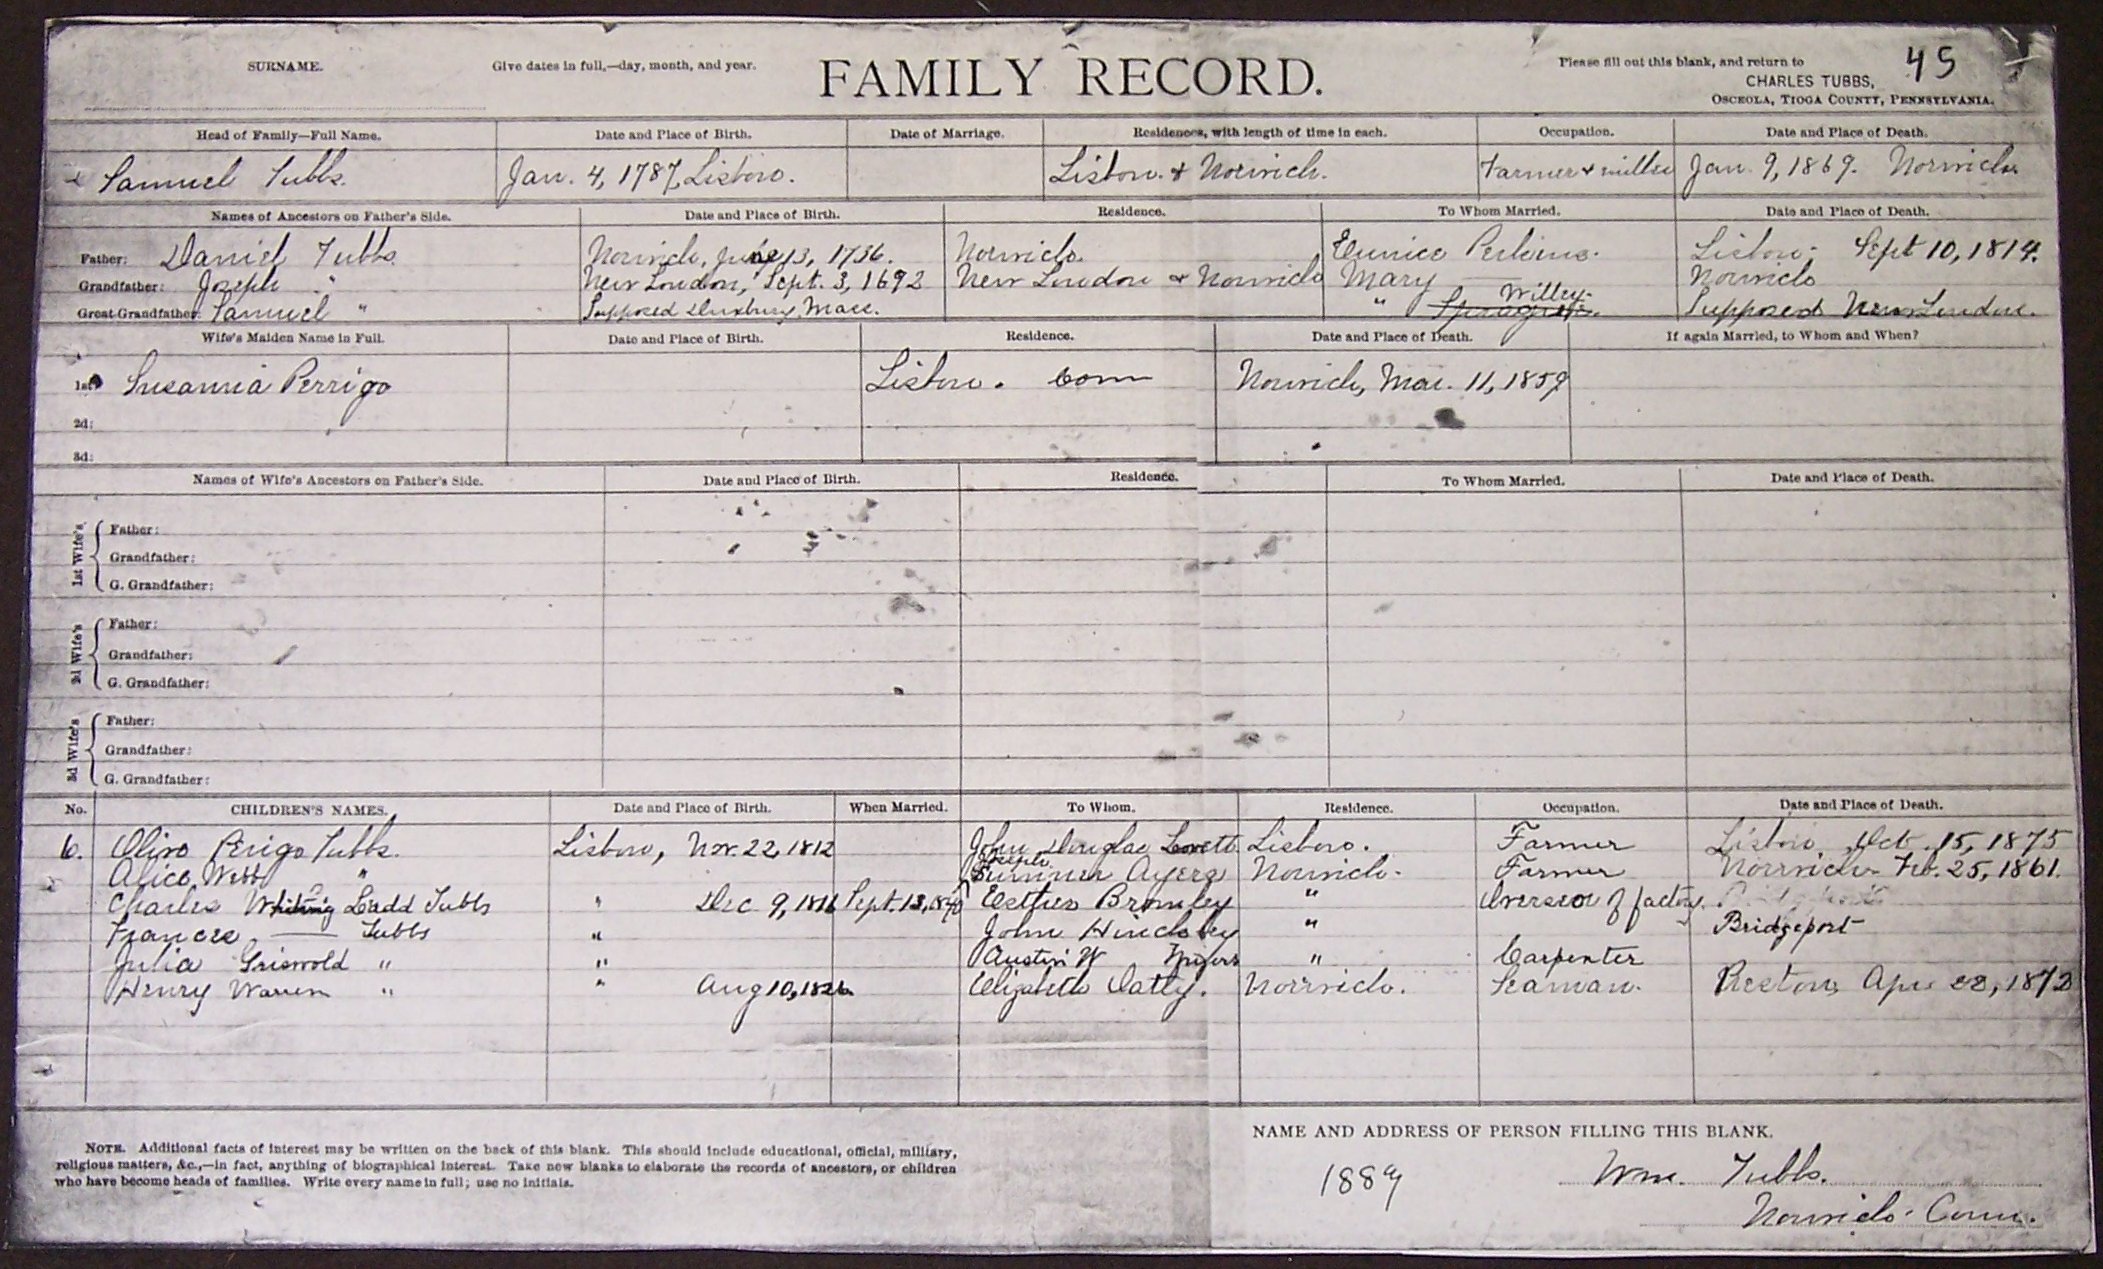 SURNAME.
Give dates in full,—day, month, and year.
FAMILY RECORD.
Please fill out this blank, and return to
CHARLES TUBBS,
OSCEOLA, TIOGA COUNTY, PENNSYLVANIA.
45
Head of Family—Full Name. Date and Place of Birth. Date of Marriage. Residences, with length of time in each. Occupation. Date and Place of Death.
Samuel Tubbs. Jan. 4, 1787, Lisbon. Lisbon & Norwich. Farmer & miller Jan. 9, 1869. Norwich
Names of Ancestors on Father's Side. Date and Place of Birth. Residence. To Whom Married. Date and Place of Death.
Father: Daniel Tubbs. Norwich, June 13, 1736. Norwich. Eunice Perkins. Lisbon, Sept 10, 1814.
Grandfather: Joseph " New London, Sept. 3, 1692 New London & Norwich Mary —— Norwich
Great-Grandfather: Samuel " Supposed Duxbury, Mass. " Sprague Willey. Supposed New London.
Wife's Maiden Name in Full. Date and Place of Birth. Residence. Date and Place of Death. If again Married, to Whom and When?
1st: Susanna Perrigo Lisbon. Conn Norwich, Mar. 11, 1859
2d:
3d:
Names of Wife's Ancestors on Father's Side. Date and Place of Birth. Residence. To Whom Married. Date and Place of Death.
1st Wife's
Father:
Grandfather:
G. Grandfather:
2d Wife's
Father:
Grandfather:
G. Grandfather:
3d Wife's
Father:
Grandfather:
G. Grandfather:
No. CHILDREN'S NAMES. Date and Place of Birth. When Married. To Whom. Residence. Occupation. Date and Place of Death.
6. Olive Perigo Tubbs. Lisbon, Nov. 22, 1812 John Douglas Lovett. Lisbon. Farmer Lisbon, Oct. 15, 1875
Alice Webb " Joseph Sumner Ayers Norwich. Farmer Norwich Feb. 25, 1861.
Charles Whiting Ladd Tubbs " Dec 9, 1816 Sept. 13, 1840 Esther Bromley " Overseer of factory.
Frances —— Tubbs " John Hinckley " Bridgeport
Julia Griswold " " Austin W " Carpenter
Henry Warren " " Aug 10, 1826. Elizabeth Norwich. Seaman. Preston, Apr 28, 1872
NOTE. Additional facts of interest may be written on the back of this blank. This should include educational, official, military,
religious matters, &c.,—in fact, anything of biographical interest. Take new blanks to elaborate the records of ancestors, or children
who have become heads of families. Write every name in full; use no initials.
NAME AND ADDRESS OF PERSON FILLING THIS BLANK.
1889 Wm. Tubbs.
Norwich. Conn.